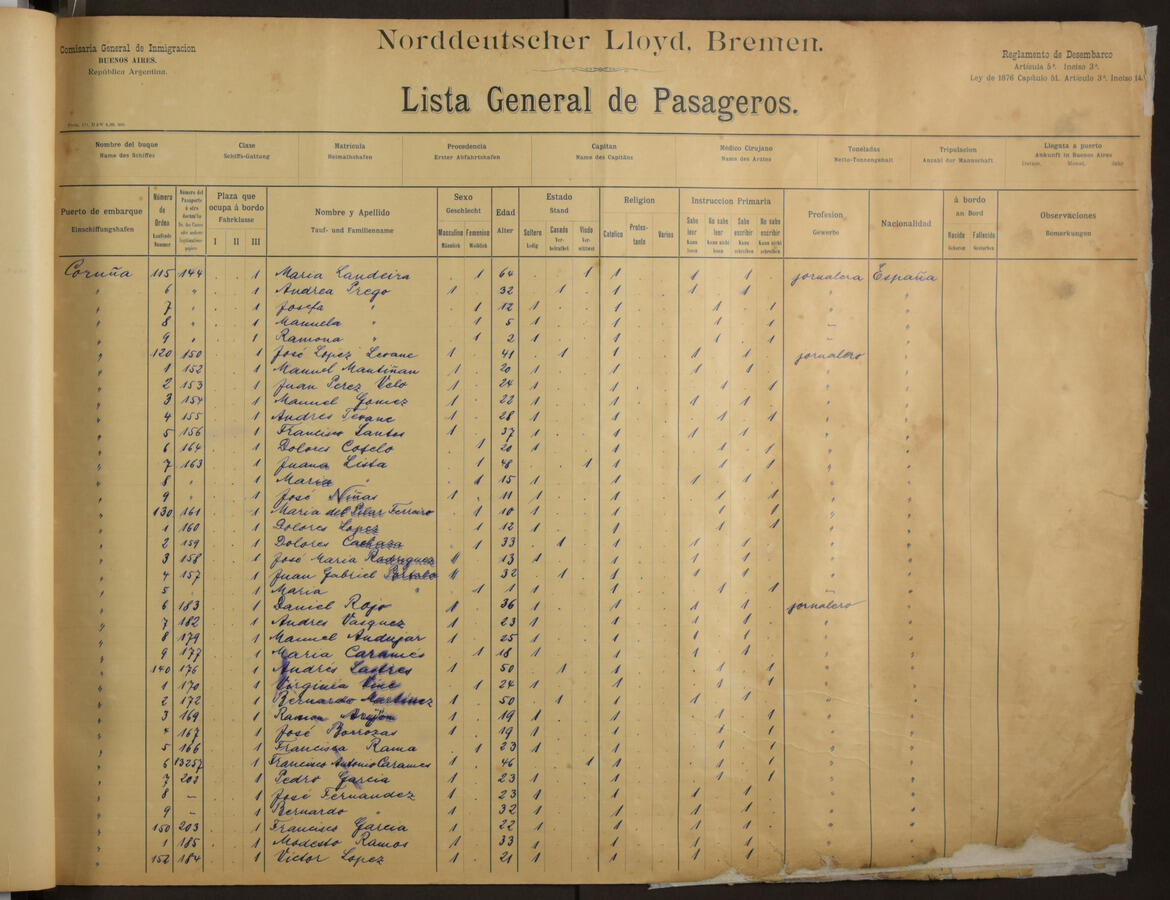 Comisaria General de Inmigracion
BUENOS AIRES.
República Argentina.
Norddeutscher Lloyd, Bremen.
Reglamento de Desembarco
Artícula 5º. Inciso 3º.
Ley de 1876 Capítulo 51. Artículo 3º. Inciso 14
Lista General de Pasageros.
Nombre del buque Clase Matrícula Procedencia Capitan Médico Cirujano Toneladas Tripulacion Llegata a puerto
Name des Schiffes Schiffs-Gattung Heimathshafen Erster Abfahrtshafen Name des Capitäns Name des Arztes Netto-Tonnengehalt Anzahl der Mannschaft Ankunft in Buenos Aires
Puerto de embarque Número de Orden Plaza que ocupa á bordo Nombre y Apellido Sexo Edad Estado Religion Instruccion Primaria Profesion Nacionalidad á bordo Observaciones
Einschiffungshafen Laufende Nummer Fahrklasse Tauf- und Familienname Geschlecht Alter Stand Gewerbe an Bord Bemerkungen
I II III Masculino Femenino Soltero Casado Viudo Catolico Protestante Varios Sabe leer No sabe leer Sabe escribir No sabe escribir Nacido Fallecido
Männlich Weiblich Ledig Verheirathet Verwittwet Kann lesen Kann nicht lesen Kann schreiben Kann nicht schreiben Geboren Gestorben
Coruña 115 144 1 Maria Landeira 1 64 1 1 1 1 jornalera España
" 6 " 1 Andrea Prego 1 32 1 1 1 1 " "
" 7 " 1 Josefa " 1 12 1 1 1 1 " "
" 8 " 1 Manuela " 1 5 1 1 1 1 "
" 9 " 1 Ramona " 1 2 1 1 1 1 "
" 120 150 1 José Lopez Seoane 1 41 1 1 1 1 jornalero "
" 1 152 1 Manuel Mantiñan 1 20 1 1 1 1 " "
" 2 153 1 Juan Perez Velo 1 24 1 1 1 1 " "
" 3 154 1 Manuel Gomez 1 22 1 1 1 1 " "
" 4 155 1 Andres Seoane 1 28 1 1 1 1 " "
" 5 156 1 Francisco Santos 1 37 1 1 1 1 " "
" 6 164 1 Dolores 1 20 1 1 1 1 " "
" 7 163 1 Juana Lista 1 48 1 1 1 1 " "
" 8 " 1 Maria " 1 15 1 1 1 1 " "
" 9 " 1 José Niñas 1 11 1 1 1 1 " "
" 130 161 1 Maria del Pilar Ferreiro 1 10 1 1 1 1 " "
" 1 160 1 Dolores Lopez 1 12 1 1 1 1 " "
" 2 159 1 Dolores Cachaza 1 33 1 1 1 1 " "
" 3 158 1 José Maria Rodriguez 1 13 1 1 1 1 " "
" 4 157 1 Juan Gabriel 1 32 1 1 1 1 " "
" 5 " 1 Maria " 1 1 1 1 1 1 "
" 6 183 1 Daniel Rojo 1 36 1 1 1 1 jornalero "
" 7 182 1 Andres Vasquez 1 23 1 1 1 1 " "
" 8 179 1 Manuel Andujar 1 25 1 1 1 1 " "
" 9 177 1 Maria Caramés 1 18 1 1 1 1 " "
" 140 176 1 Andrés Lastres 1 50 1 1 1 1 " "
" 1 170 1 Virginia 1 24 1 1 1 1 " "
" 2 172 1 Bernardo Martinez 1 50 1 1 1 1 " "
" 3 169 1 Ramon 1 19 1 1 1 1 " "
" 4 167 1 José Borrozas 1 19 1 1 1 1 " "
" 5 166 1 Francisca Rama 1 23 1 1 1 1 " "
" 6 13257 1 Francisco Antonio Caramés 1 46 1 1 1 1 " "
" 7 202 1 Pedro Garcia 1 23 1 1 1 1 " "
" 8 — 1 José Fernandez 1 23 1 1 1 1 " "
" 9 — 1 Bernardo " 1 32 1 1 1 1 " "
" 150 203 1 Francisco Garcia 1 22 1 1 1 1 " "
" 1 185 1 Modesto Ramos 1 33 1 1 1 1 " "
" 152 184 1 Victor Lopez 1 21 1 1 1 1 " "